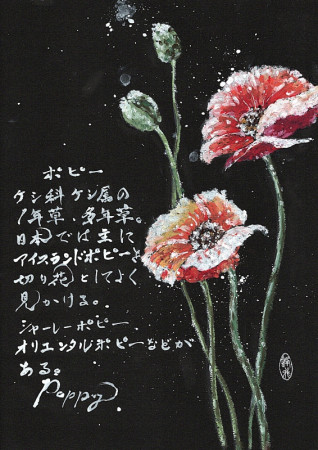 ポピー
ケシ科ケシ属の
1年草、多年草。
日本では主に
アイスランドポピーを
切り花としてよく
見かける。
シャーレーポピー、
オリエンタルポピーなどが
ある。
Poppy.